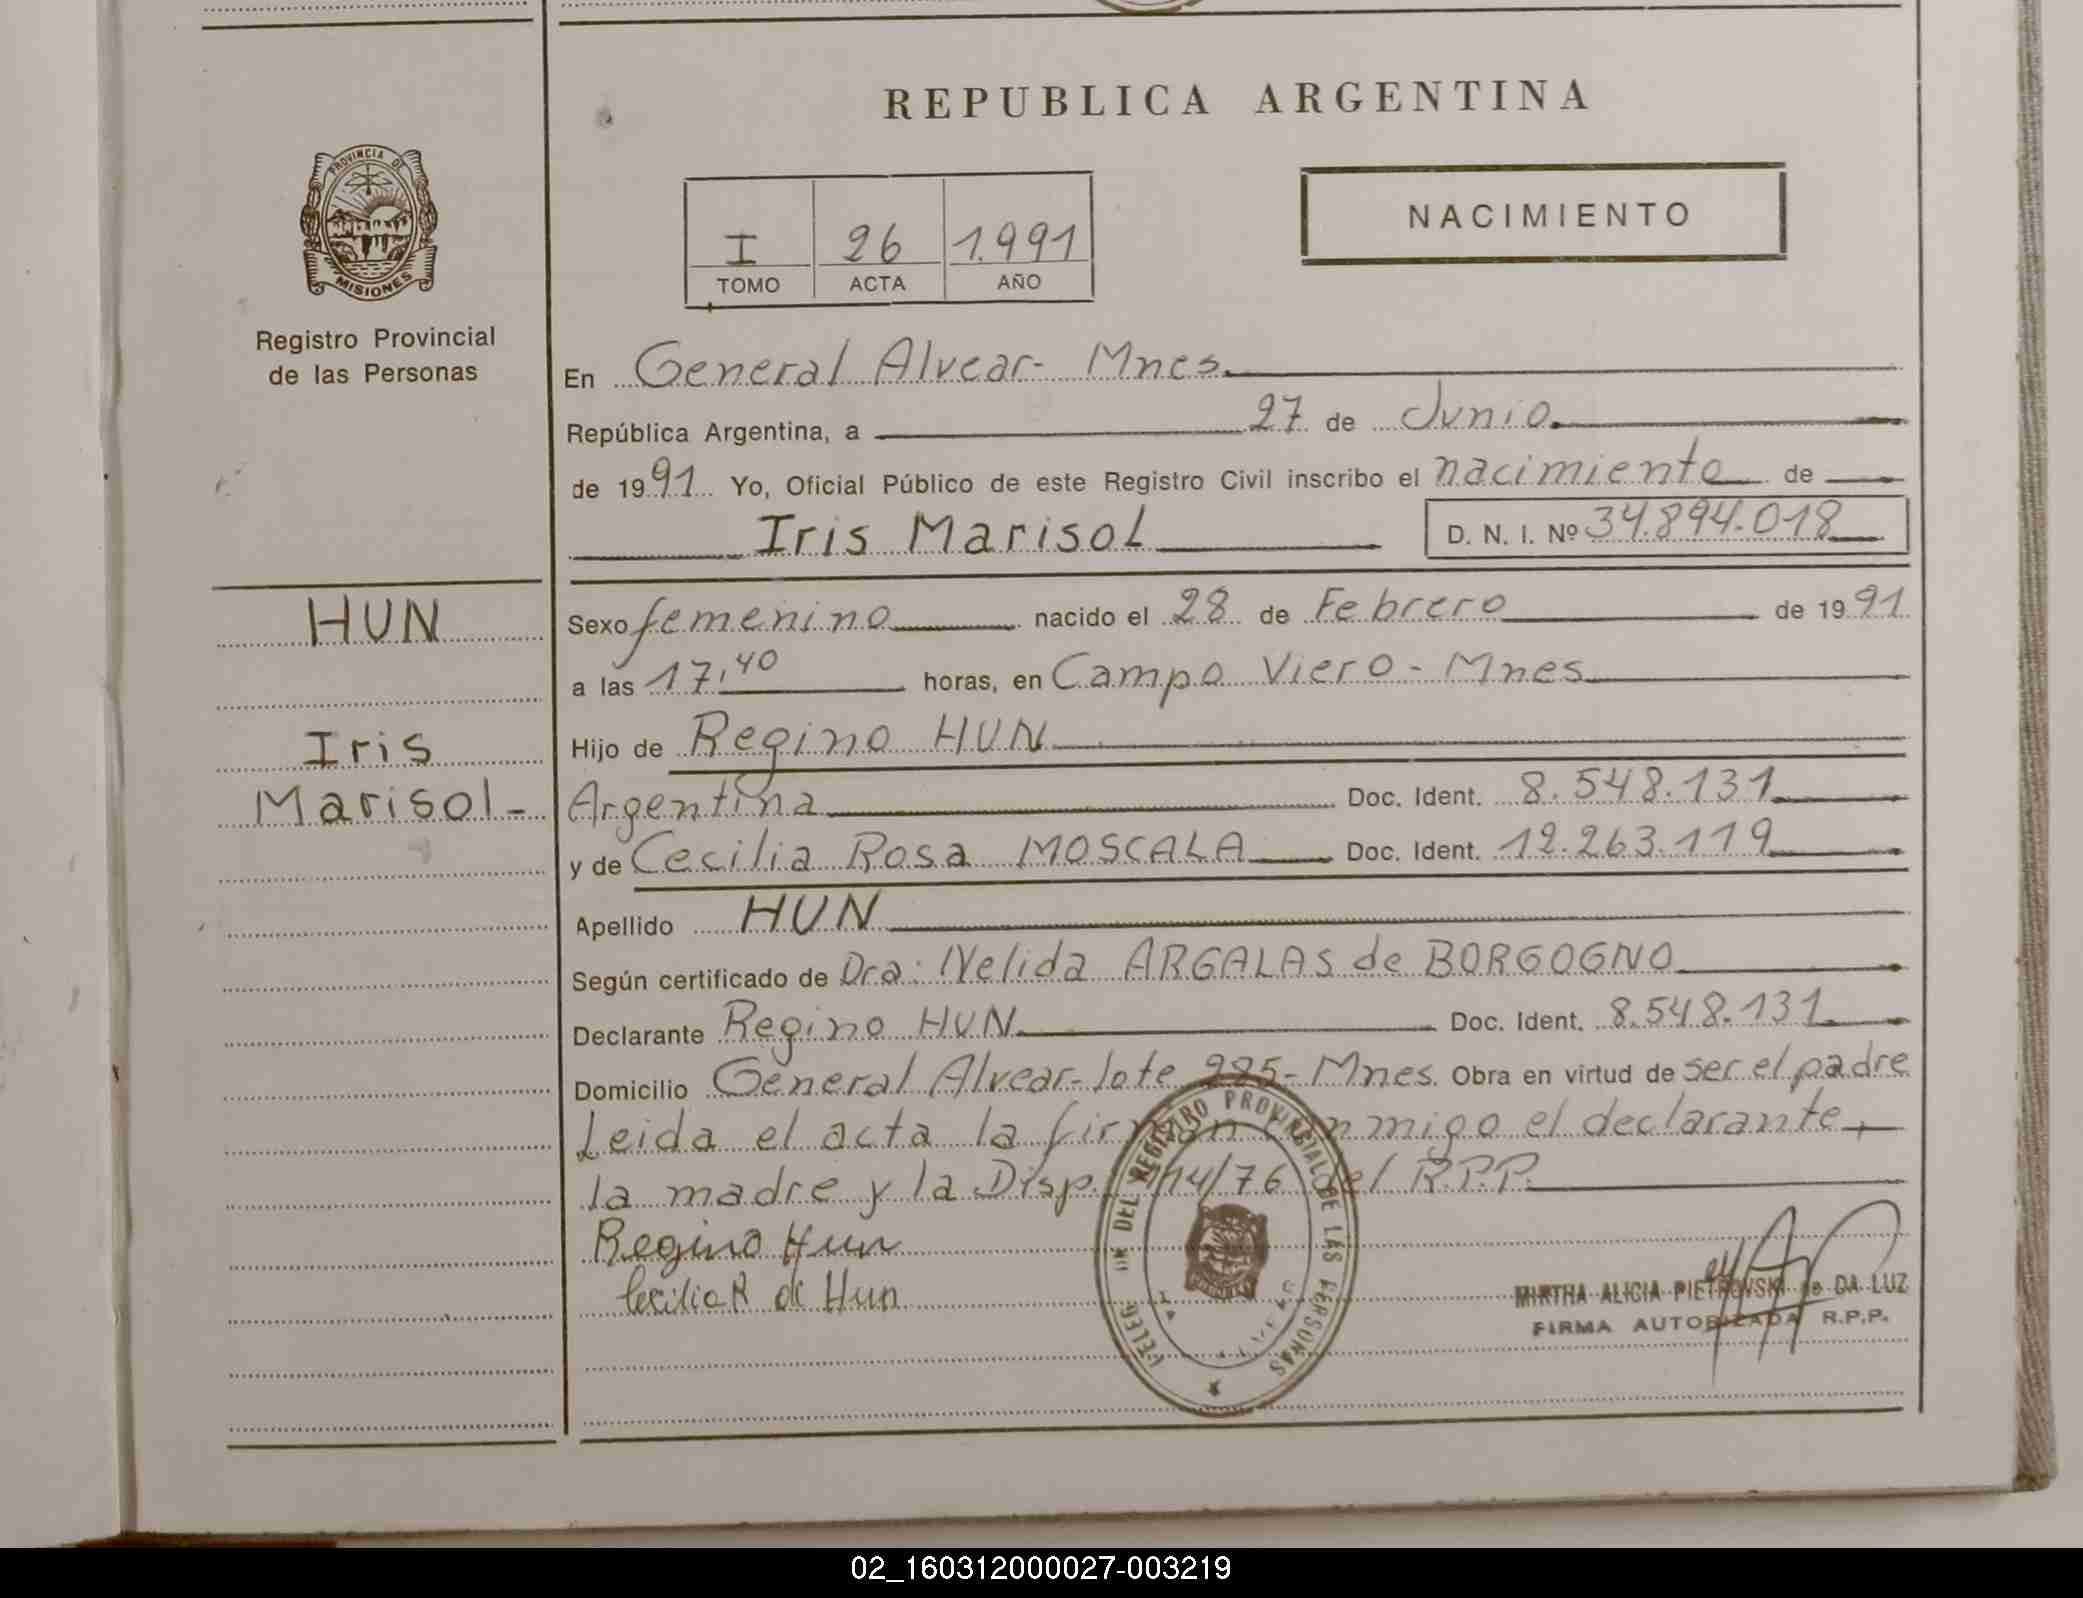 REPUBLICA ARGENTINA
PROVINCIA DE
MISIONES
Registro Provincial
de las Personas
I 26 1.991
TOMO ACTA AÑO
NACIMIENTO
En General Alvear- Mnes.
República Argentina, a 27 de Junio.
de 1991. Yo, Oficial Público de este Registro Civil inscribo el nacimiento de
Iris Marisol D. N. I. Nº 34.894.018
HUN
Iris
Marisol-
Sexo femenino nacido el 28 de Febrero de 1991
a las 17,40 horas, en Campo Viero - Mnes
Hijo de Regino HUN
Argentina Doc. Ident. 8.548.131
y de Cecilia Rosa MOSCALA Doc. Ident. 12.263.119
Apellido HUN
Según certificado de Dra: Nelida ARGALAS de BORGOGNO
Declarante Regino HUN Doc. Ident. 8.548.131
Domicilio General Alvear-lote 225- Mnes. Obra en virtud de ser el padre
Leida el acta la firman conmigo el declarante,
la madre y la Disp. 114/76 del R.P.P.
Regino Hun
Cecilia R de Hun
DEL REGISTRO PROVINCIAL DE LAS PERSONAS
MIRTHA ALICIA PIETROVSKI de DA LUZ
FIRMA AUTORIZADA R.P.P.
02_160312000027-003219